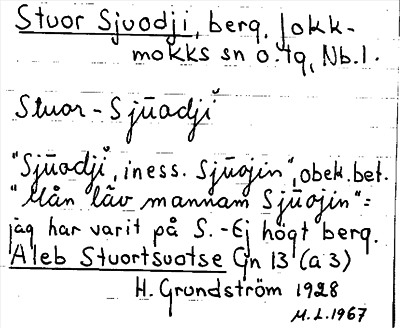 Stuor Sjuodji, berg, Jokk-
mokks sn o. tg, Nb. l.
Stuor-Sjūodji̬
"Sjūodji̬, iness. Sjūojin", obek. bet.
"Mån läv mannam Sjūojin"=
jag har varit på S. - Ej högt berg.
Aleb Stuortsuotse Gn 13 (a 3)
H. Grundström 1928
M.L. 1967